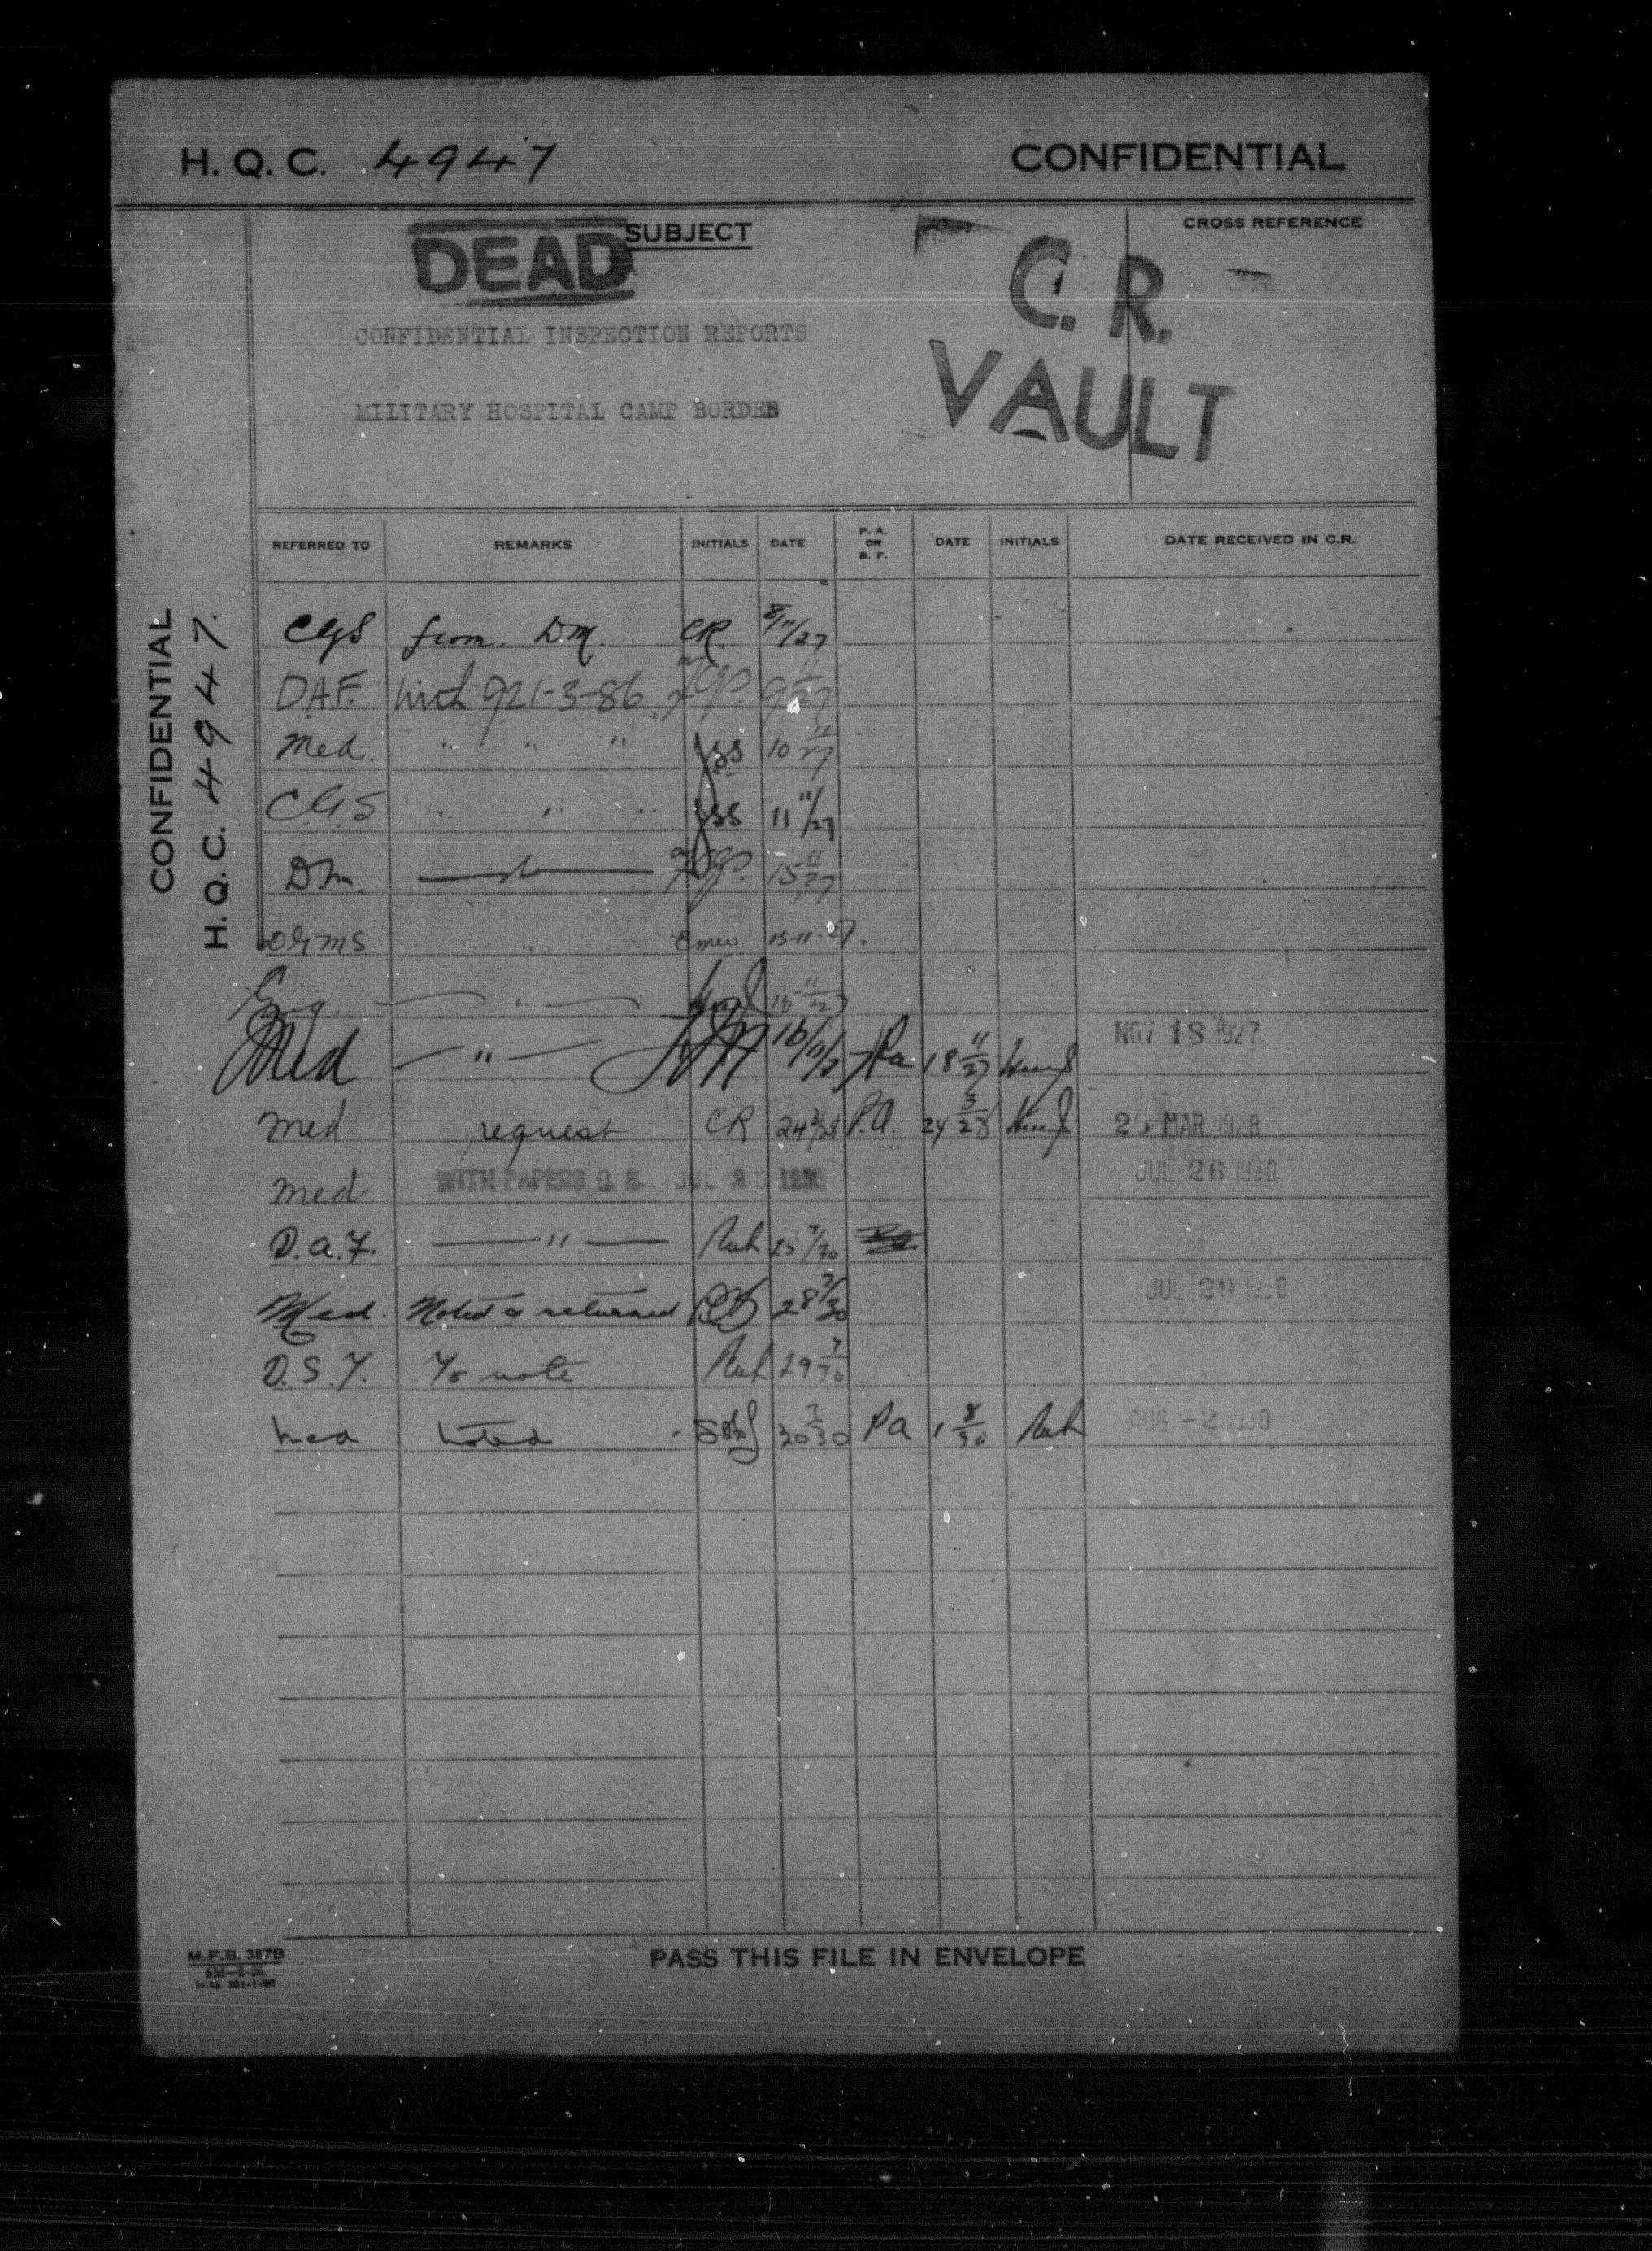 H. Q. C. 4947 CONFIDENTIAL
DEAD SUBJECT
CROSS REFERENCE
C. R.
VAULT
CONFIDENTIAL INSPECTION REPORTS
MILITARY HOSPITAL CAMP BORDEN
CONFIDENTIAL
H. Q. C. 4947.
REFERRED TO REMARKS INITIALS DATE P. A. OR B. F. DATE INITIALS DATE RECEIVED IN C.R.
CGS from DM. CR. 8/11/27
D.A.F. with 921-3-86 9 11/27
Med. " " " JSS 10 11/27
C.G.S " " " JSS 11 11/27
DM. 15 11/27
" 15-11-27.
Eng. — " — 15 11/27
Med — " — 16/11/27 Pa 18 11/27 NOV 18 1927
Med request CR 24 3/28 P.A. 24 3/28 MAR 1928
Med WITH PAPERS JUL JUL 26 1930
D.A.F. — " — 7/30
Med. Noted & returned 28 7/30 JUL
D.S.T. To note 29 7/30
Med Noted 30 7/30 Pa 1 8/30 AUG -2
M.F.B. 387B
PASS THIS FILE IN ENVELOPE